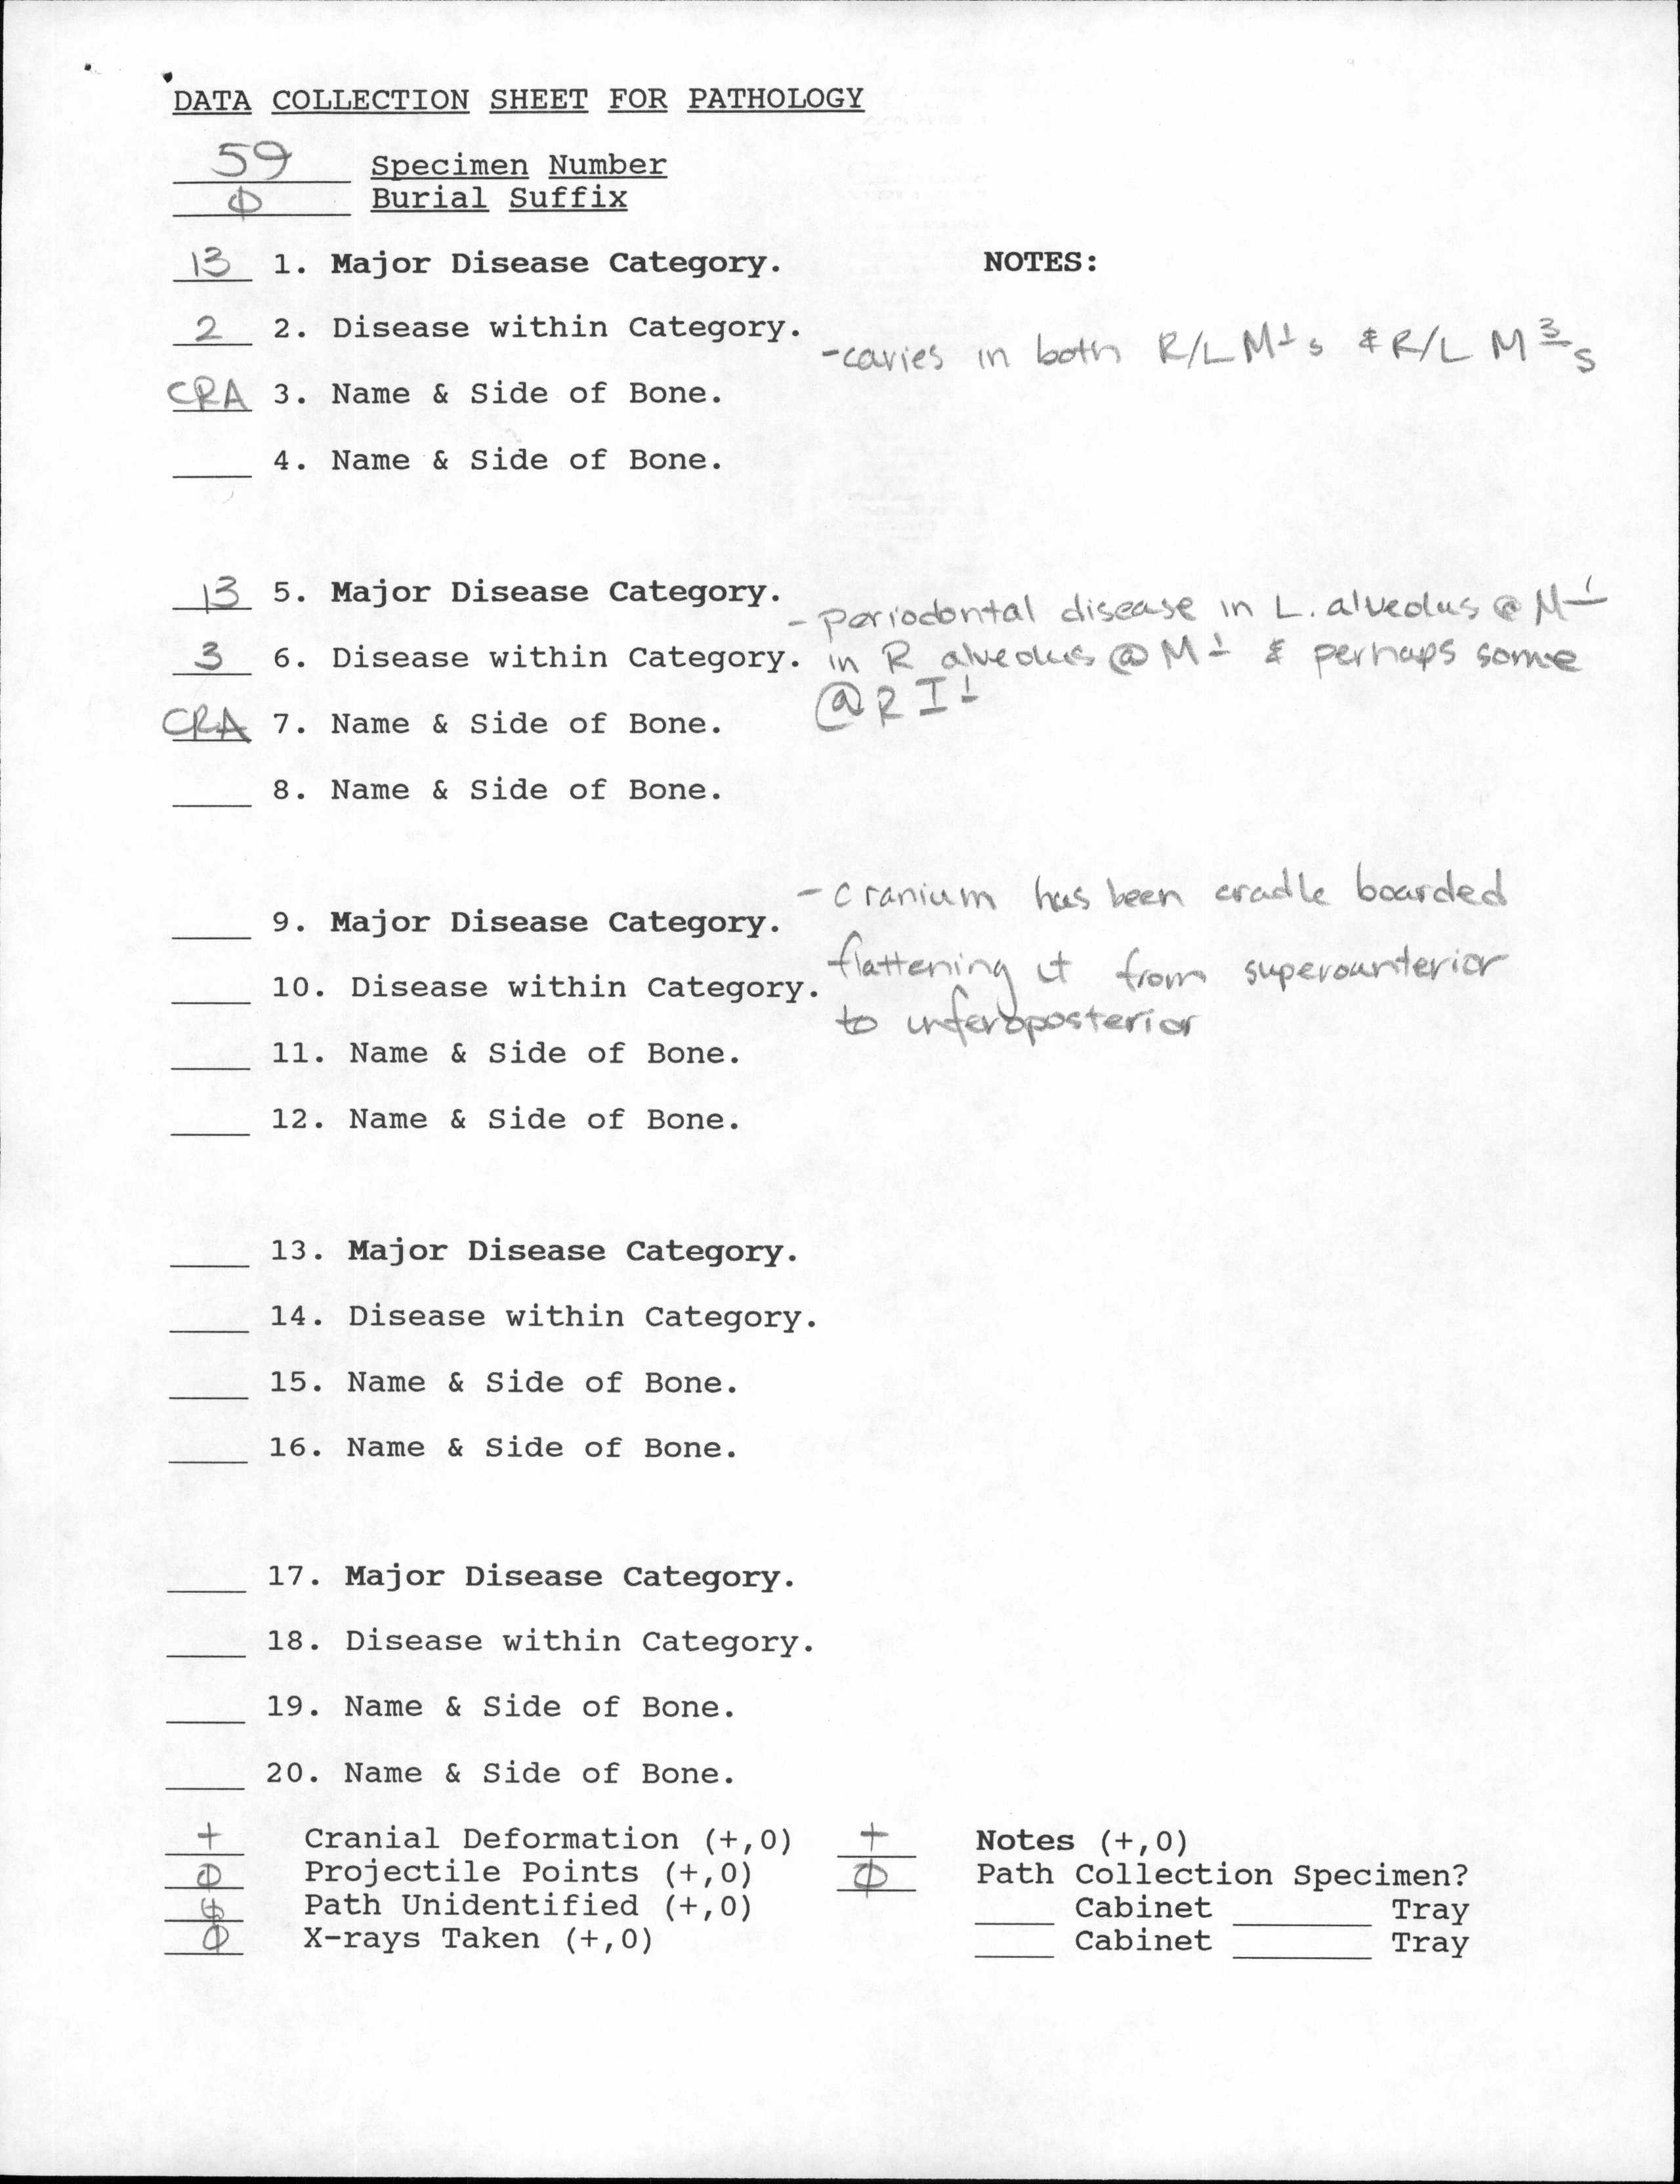 DATA COLLECTION SHEET FOR PATHOLOGY
59 Specimen Number
Ø Burial Suffix
13 1. Major Disease Category. NOTES:
2 2. Disease within Category.
-caries in both R/L M¹s & R/L M³s
CRA 3. Name & Side of Bone.
4. Name & Side of Bone.
13 5. Major Disease Category.
- periodontal disease in L. alveolus @ M¹
3 6. Disease within Category. in R alveolus @ M¹ & perhaps some
@ R I¹
CRA 7. Name & Side of Bone.
8. Name & Side of Bone.
- cranium has been cradle boarded
9. Major Disease Category.
flattening it from superoanterior
10. Disease within Category.
to inferoposterior
11. Name & Side of Bone.
12. Name & Side of Bone.
13. Major Disease Category.
14. Disease within Category.
15. Name & Side of Bone.
16. Name & Side of Bone.
17. Major Disease Category.
18. Disease within Category.
19. Name & Side of Bone.
20. Name & Side of Bone.
+ Cranial Deformation (+,0) + Notes (+,0)
Ø Projectile Points (+,0) Ø Path Collection Specimen?
Ø Path Unidentified (+,0) Cabinet Tray
Ø X-rays Taken (+,0) Cabinet Tray